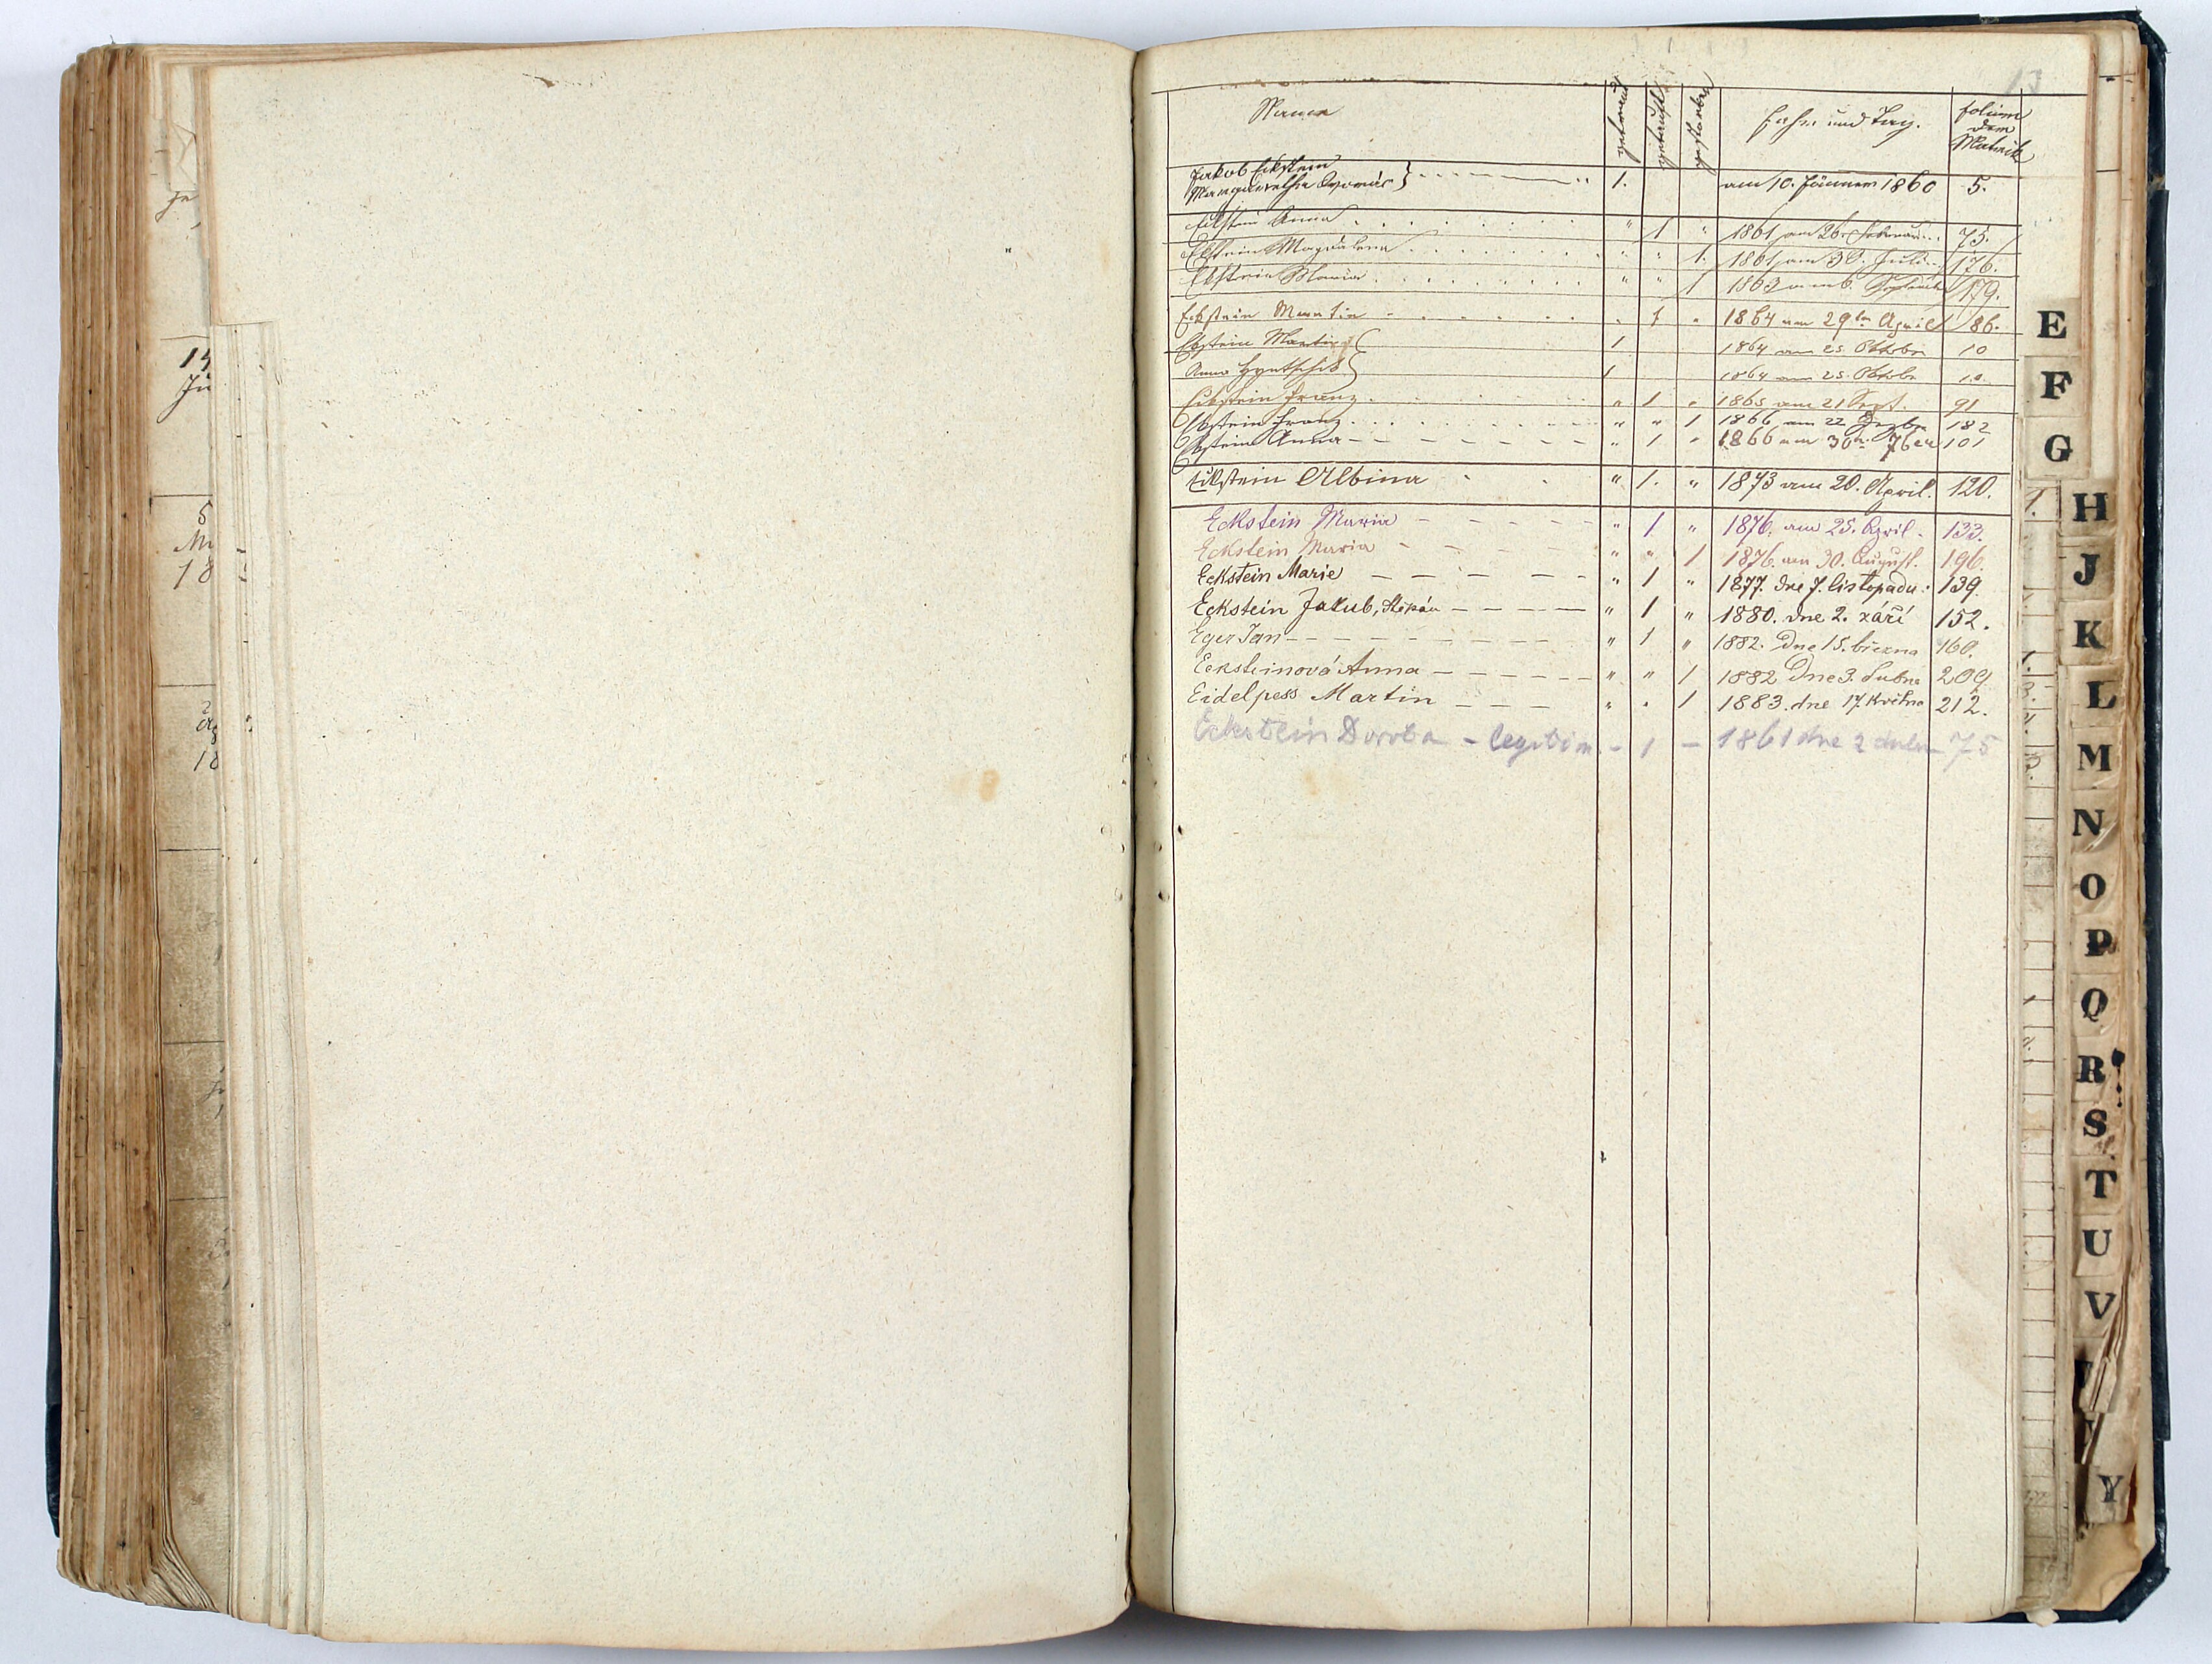 je
14
Ju
5
18
18
13
Namen getraut getauft gestorben Jahr und Tag. folium
der
Matrik
Jakob Eckstein
1. am 10. Jänner 1860 5.
Eckstein Anna " 1 " 1861 am 26. Februar 75.
Eckstein Magdalena " " 1. 1861 am 30. Juli 176.
Eckstein Maria " " 1 1863 am 6. September 179.
Eckstein Martin " 1 " 1864 am 29ten April 86.
Ekstein Martin 1 1864 am 25. Oktober 10
Anna 1 1864 am 25. Oktober 10.
Eckstein Franz " 1 " 1865 am 21 Sept. 91
Ekstein Franz " " 1 1866 am 22 182
Ekstein Anna " 1 " 1866 am 30n 7ber 101
Eckstein Albina " 1. " 1873 am 20. April. 120.
Eckstein Maria " 1. " 1876. am 25. April. 133.
Eckstein Maria " " 1 1876. am 30. August. 196.
Eckstein Marie " 1 " 1877. dne 7. listopadu. 139.
Eckstein Jakub, Štěpán " 1 " 1880. dne 2. září 152.
Eger Jan " 1 " 1882. Dne 15. března 160.
Ecksteinová Anna " " 1 1882 Dne 3. dubna 209
Eidelpess Martin " " 1 1883. dne 17. Května 212.
Eckstein Dorota - legitim. - 1 - 1861 dne 2 dubna 75
E
F
G
H
J
K
L
M
N
O
P
Q
R
S
T
U
V
Y